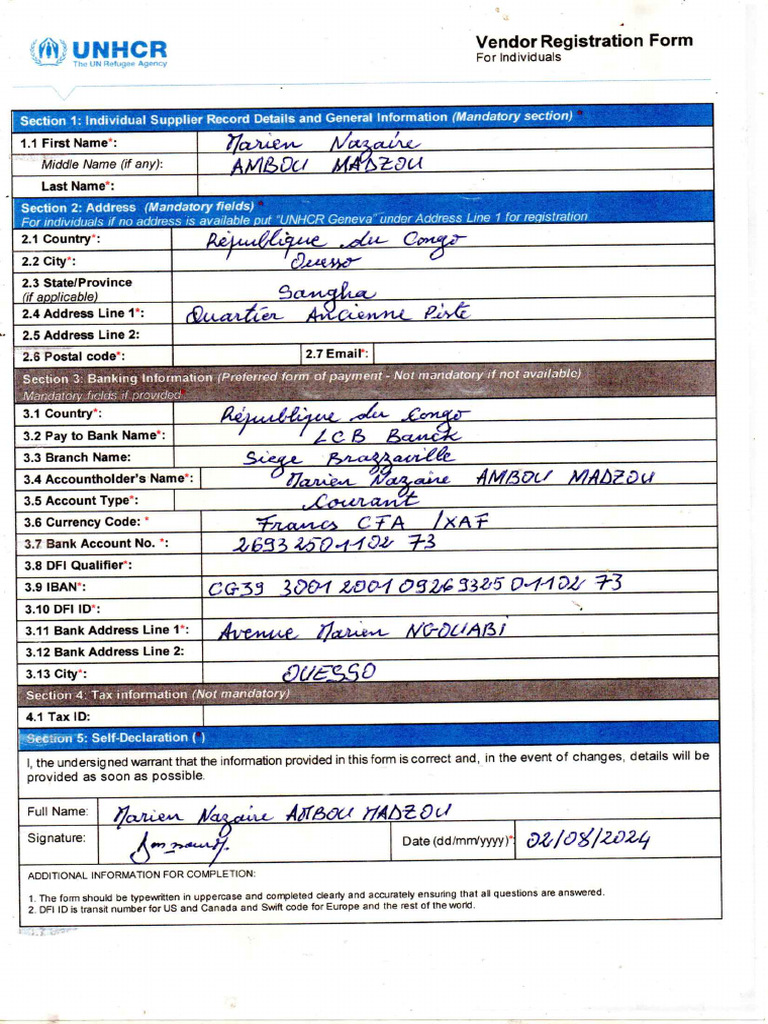 UNHCR
The UN Refugee Agency
Vendor Registration Form
For Individuals
Section 1: Individual Supplier Record Details and General Information (Mandatory section) *
1.1 First Name*: Marien Nazaire
Middle Name (if any): AMBOU MADZOU
Last Name*:
Section 2: Address (Mandatory fields) *
For individuals if no address is available put "UNHCR Geneva" under Address Line 1 for registration
2.1 Country*: République du Congo
2.2 City*: Ouesso
2.3 State/Province
(if applicable) Sangha
2.4 Address Line 1*: Quartier Ancienne Piste
2.5 Address Line 2:
2.6 Postal code*: 2.7 Email*:
Section 3: Banking Information (Preferred form of payment - Not mandatory if not available)
Mandatory fields if provided*
3.1 Country*: République du Congo
3.2 Pay to Bank Name*: LCB Banck
3.3 Branch Name: Siège Brazzaville
3.4 Accountholder's Name*: Marien Nazaire AMBOU MADZOU
3.5 Account Type*: Courant
3.6 Currency Code: * Francs CFA /XAF
3.7 Bank Account No. *: 2693 2501102 73
3.8 DFI Qualifier*:
3.9 IBAN*: CG39 3001 2001 09269325 01102 73
3.10 DFI ID*:
3.11 Bank Address Line 1*: Avenue Marien NGOUABI
3.12 Bank Address Line 2:
3.13 City*: OUESSO
Section 4: Tax information (Not mandatory)
4.1 Tax ID:
Section 5: Self-Declaration (*)
I, the undersigned warrant that the information provided in this form is correct and, in the event of changes, details will be
provided as soon as possible.
Full Name: Marien Nazaire AMBOU MADZOU
Signature: Date (dd/mm/yyyy)*: 02/08/2024
ADDITIONAL INFORMATION FOR COMPLETION:
1. The form should be typewritten in uppercase and completed clearly and accurately ensuring that all questions are answered.
2. DFI ID is transit number for US and Canada and Swift code for Europe and the rest of the world.